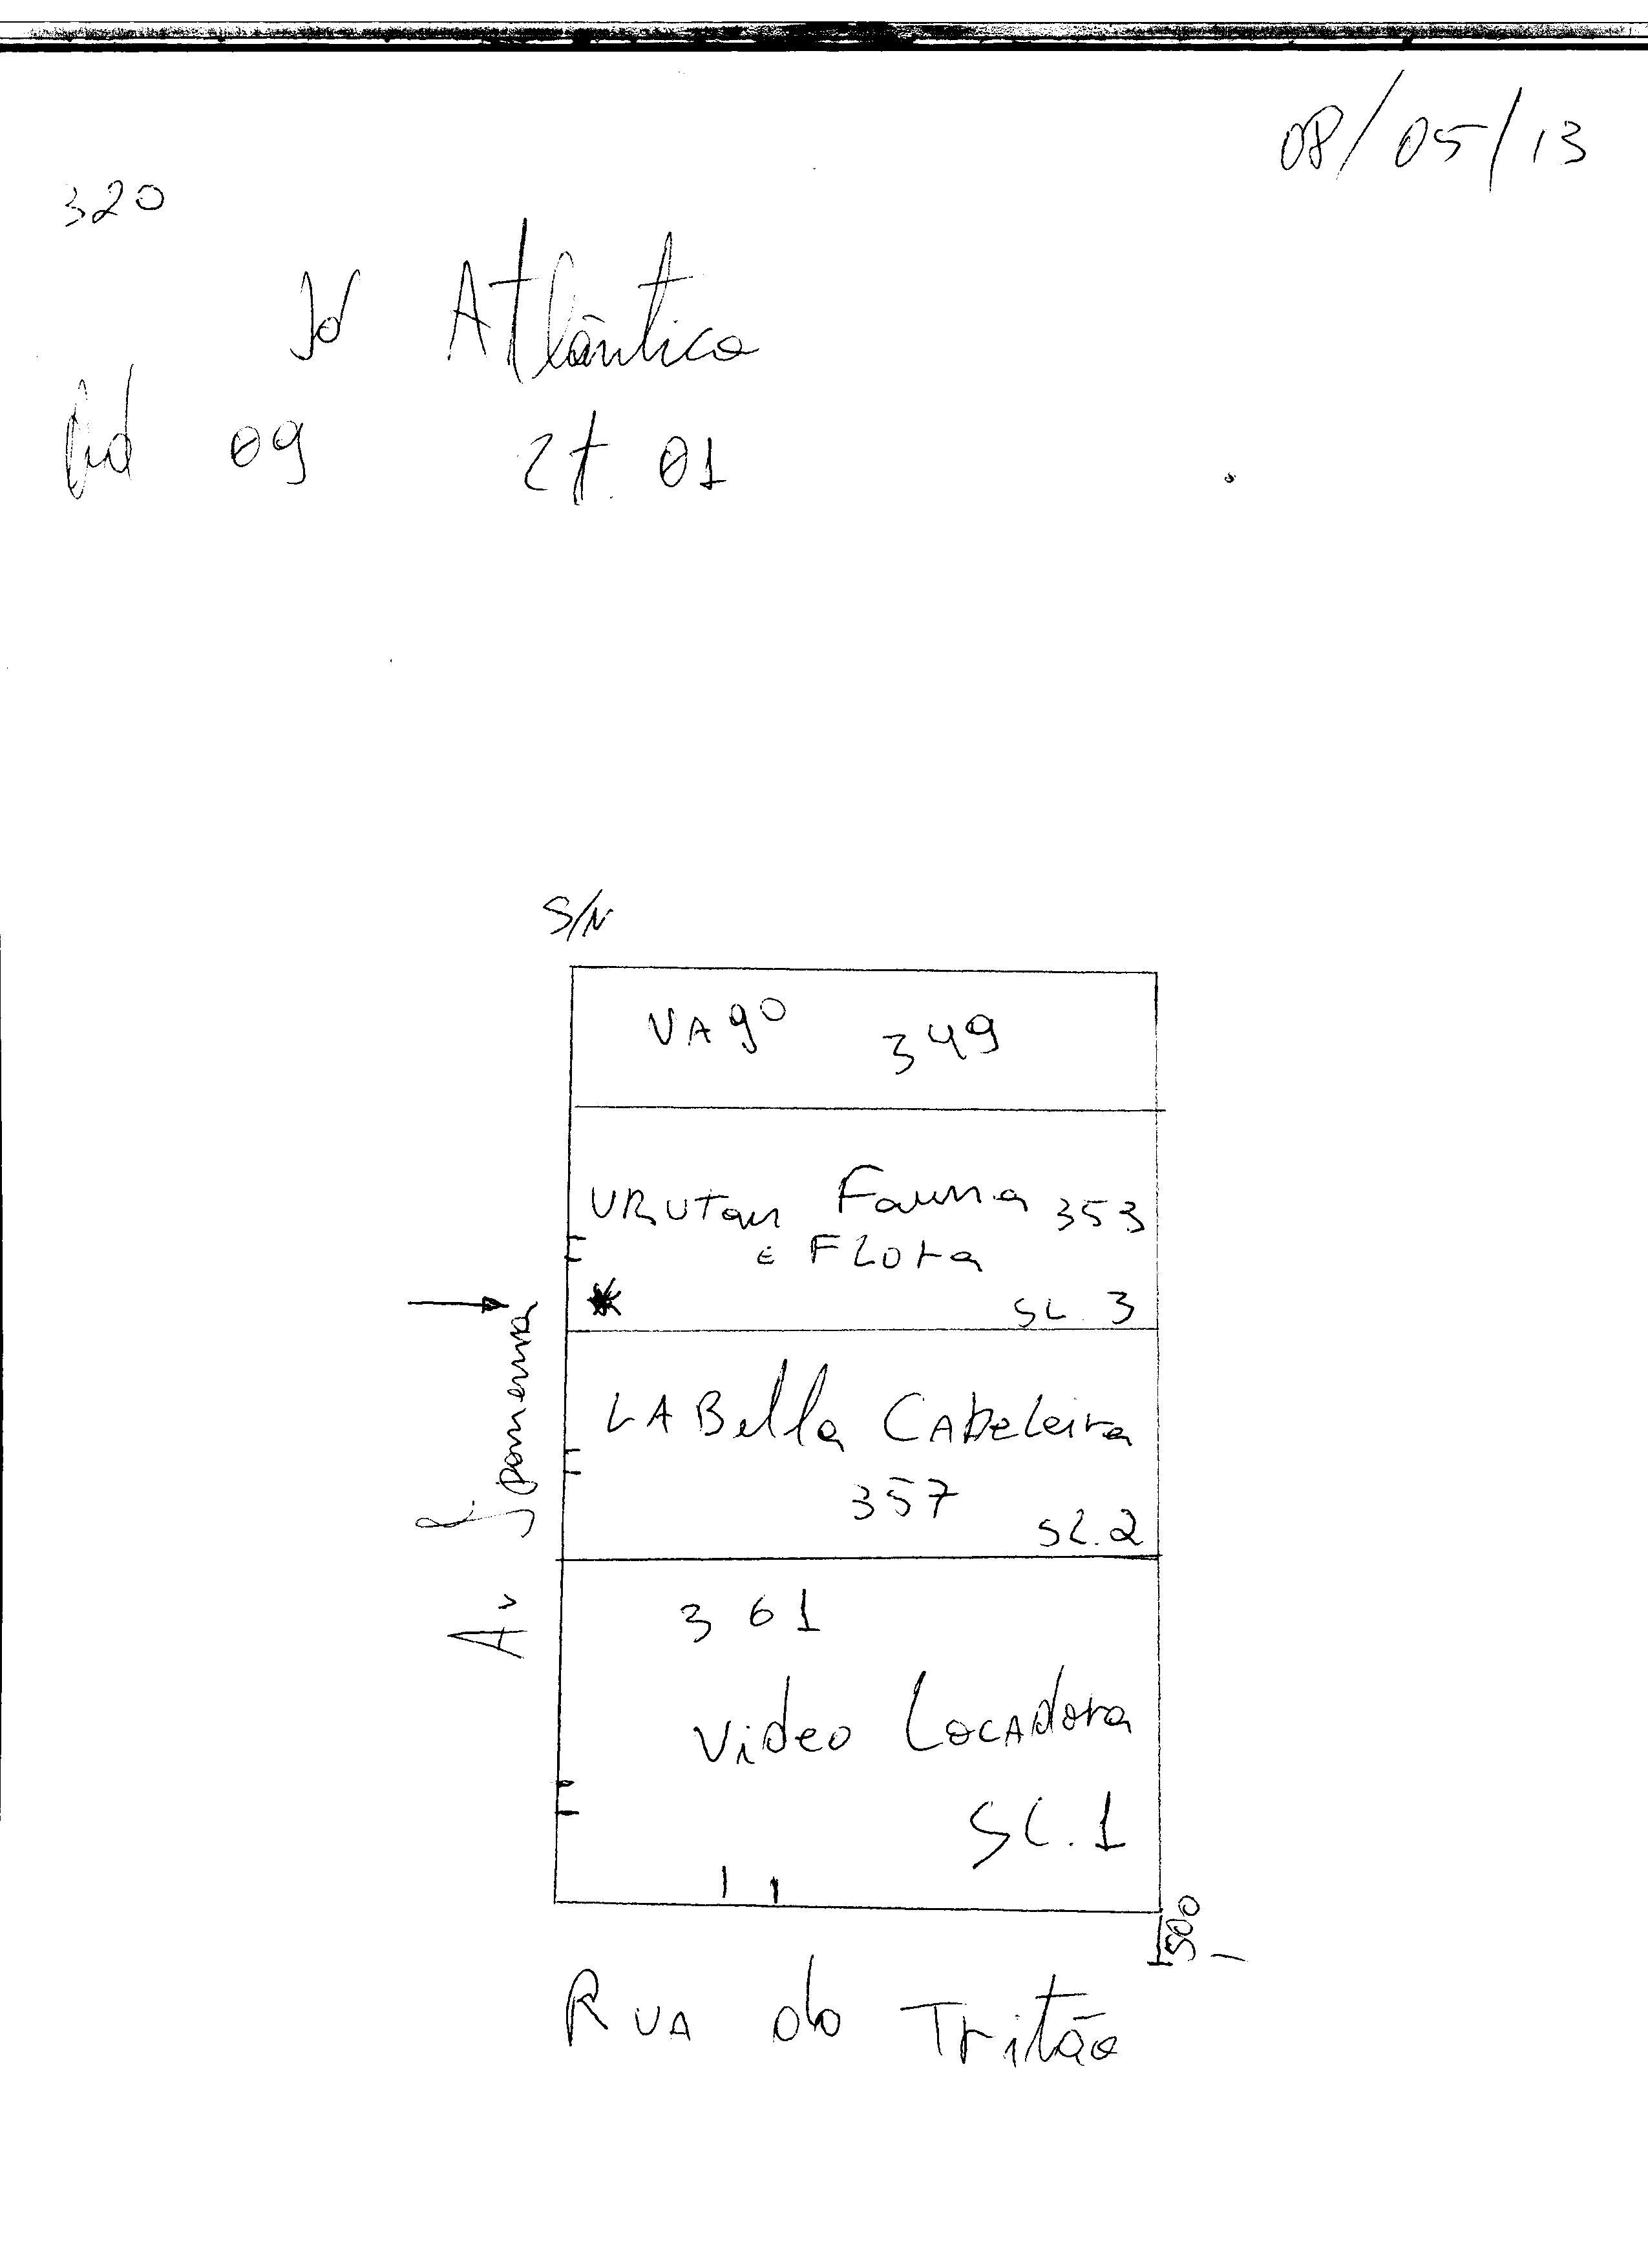 08/05/13
320
Jd Atlântico
Qd 09 Lt. 01
S/N
VAgo 349
URUTau Fauna 353
E FLora
SL. 3
Av Ipanema
LABella CABeLeira
357
SL.2
361
Video LOCADora
SL.1
500
RUA do Tritão